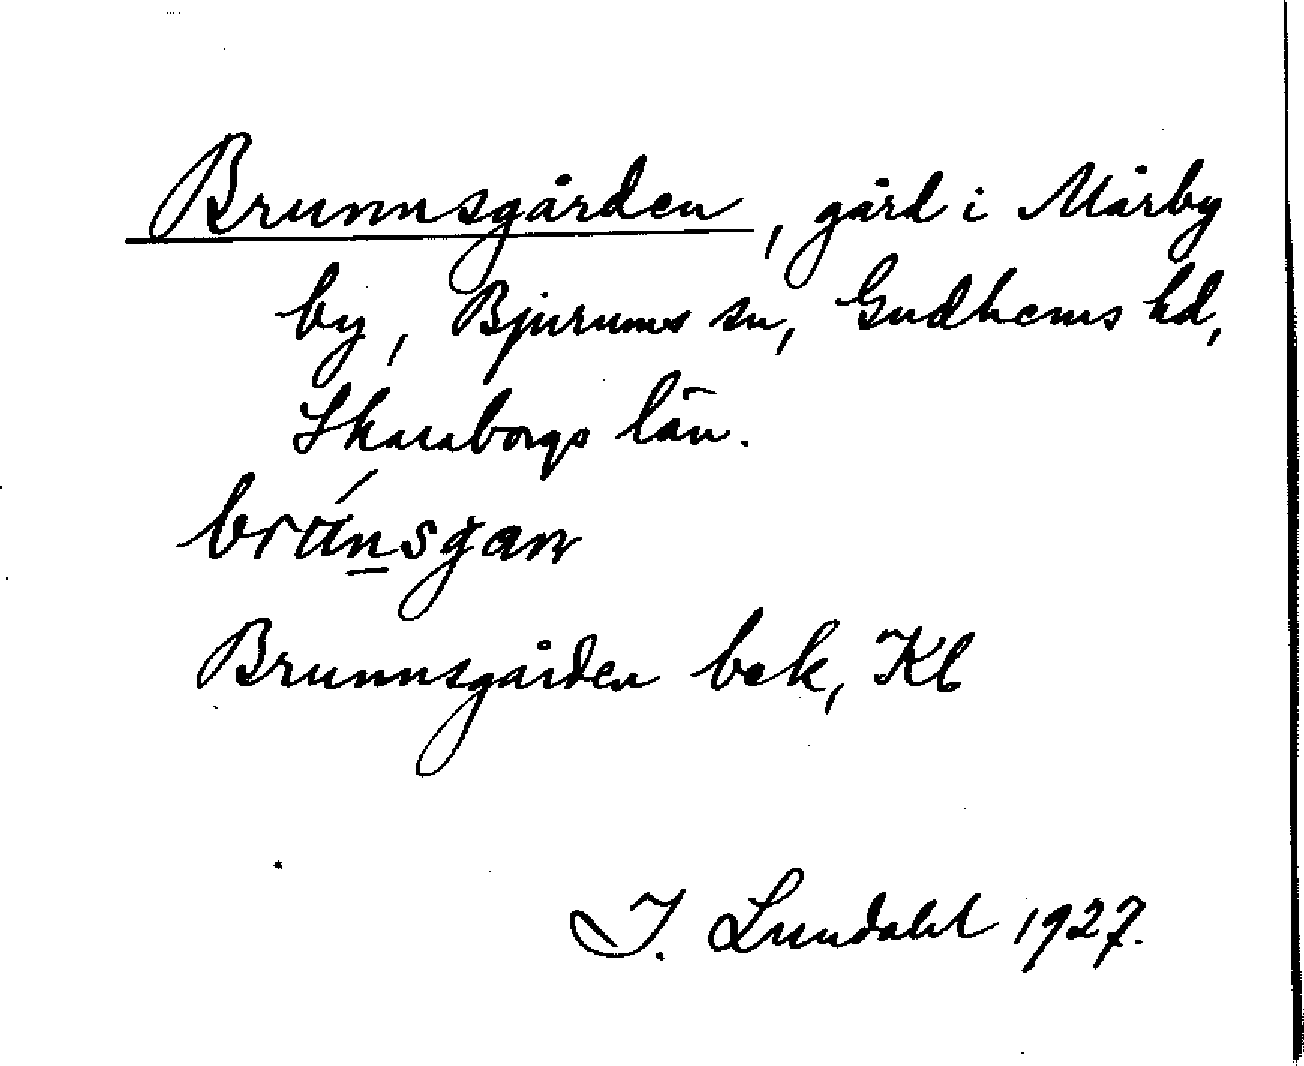 Brunnsgården, gård i Mårby
by, Bjurums sn, Gudhems hd,
Skaraborgs län.
Brunnsgården bek, Kb
I. Lundahl 1927.